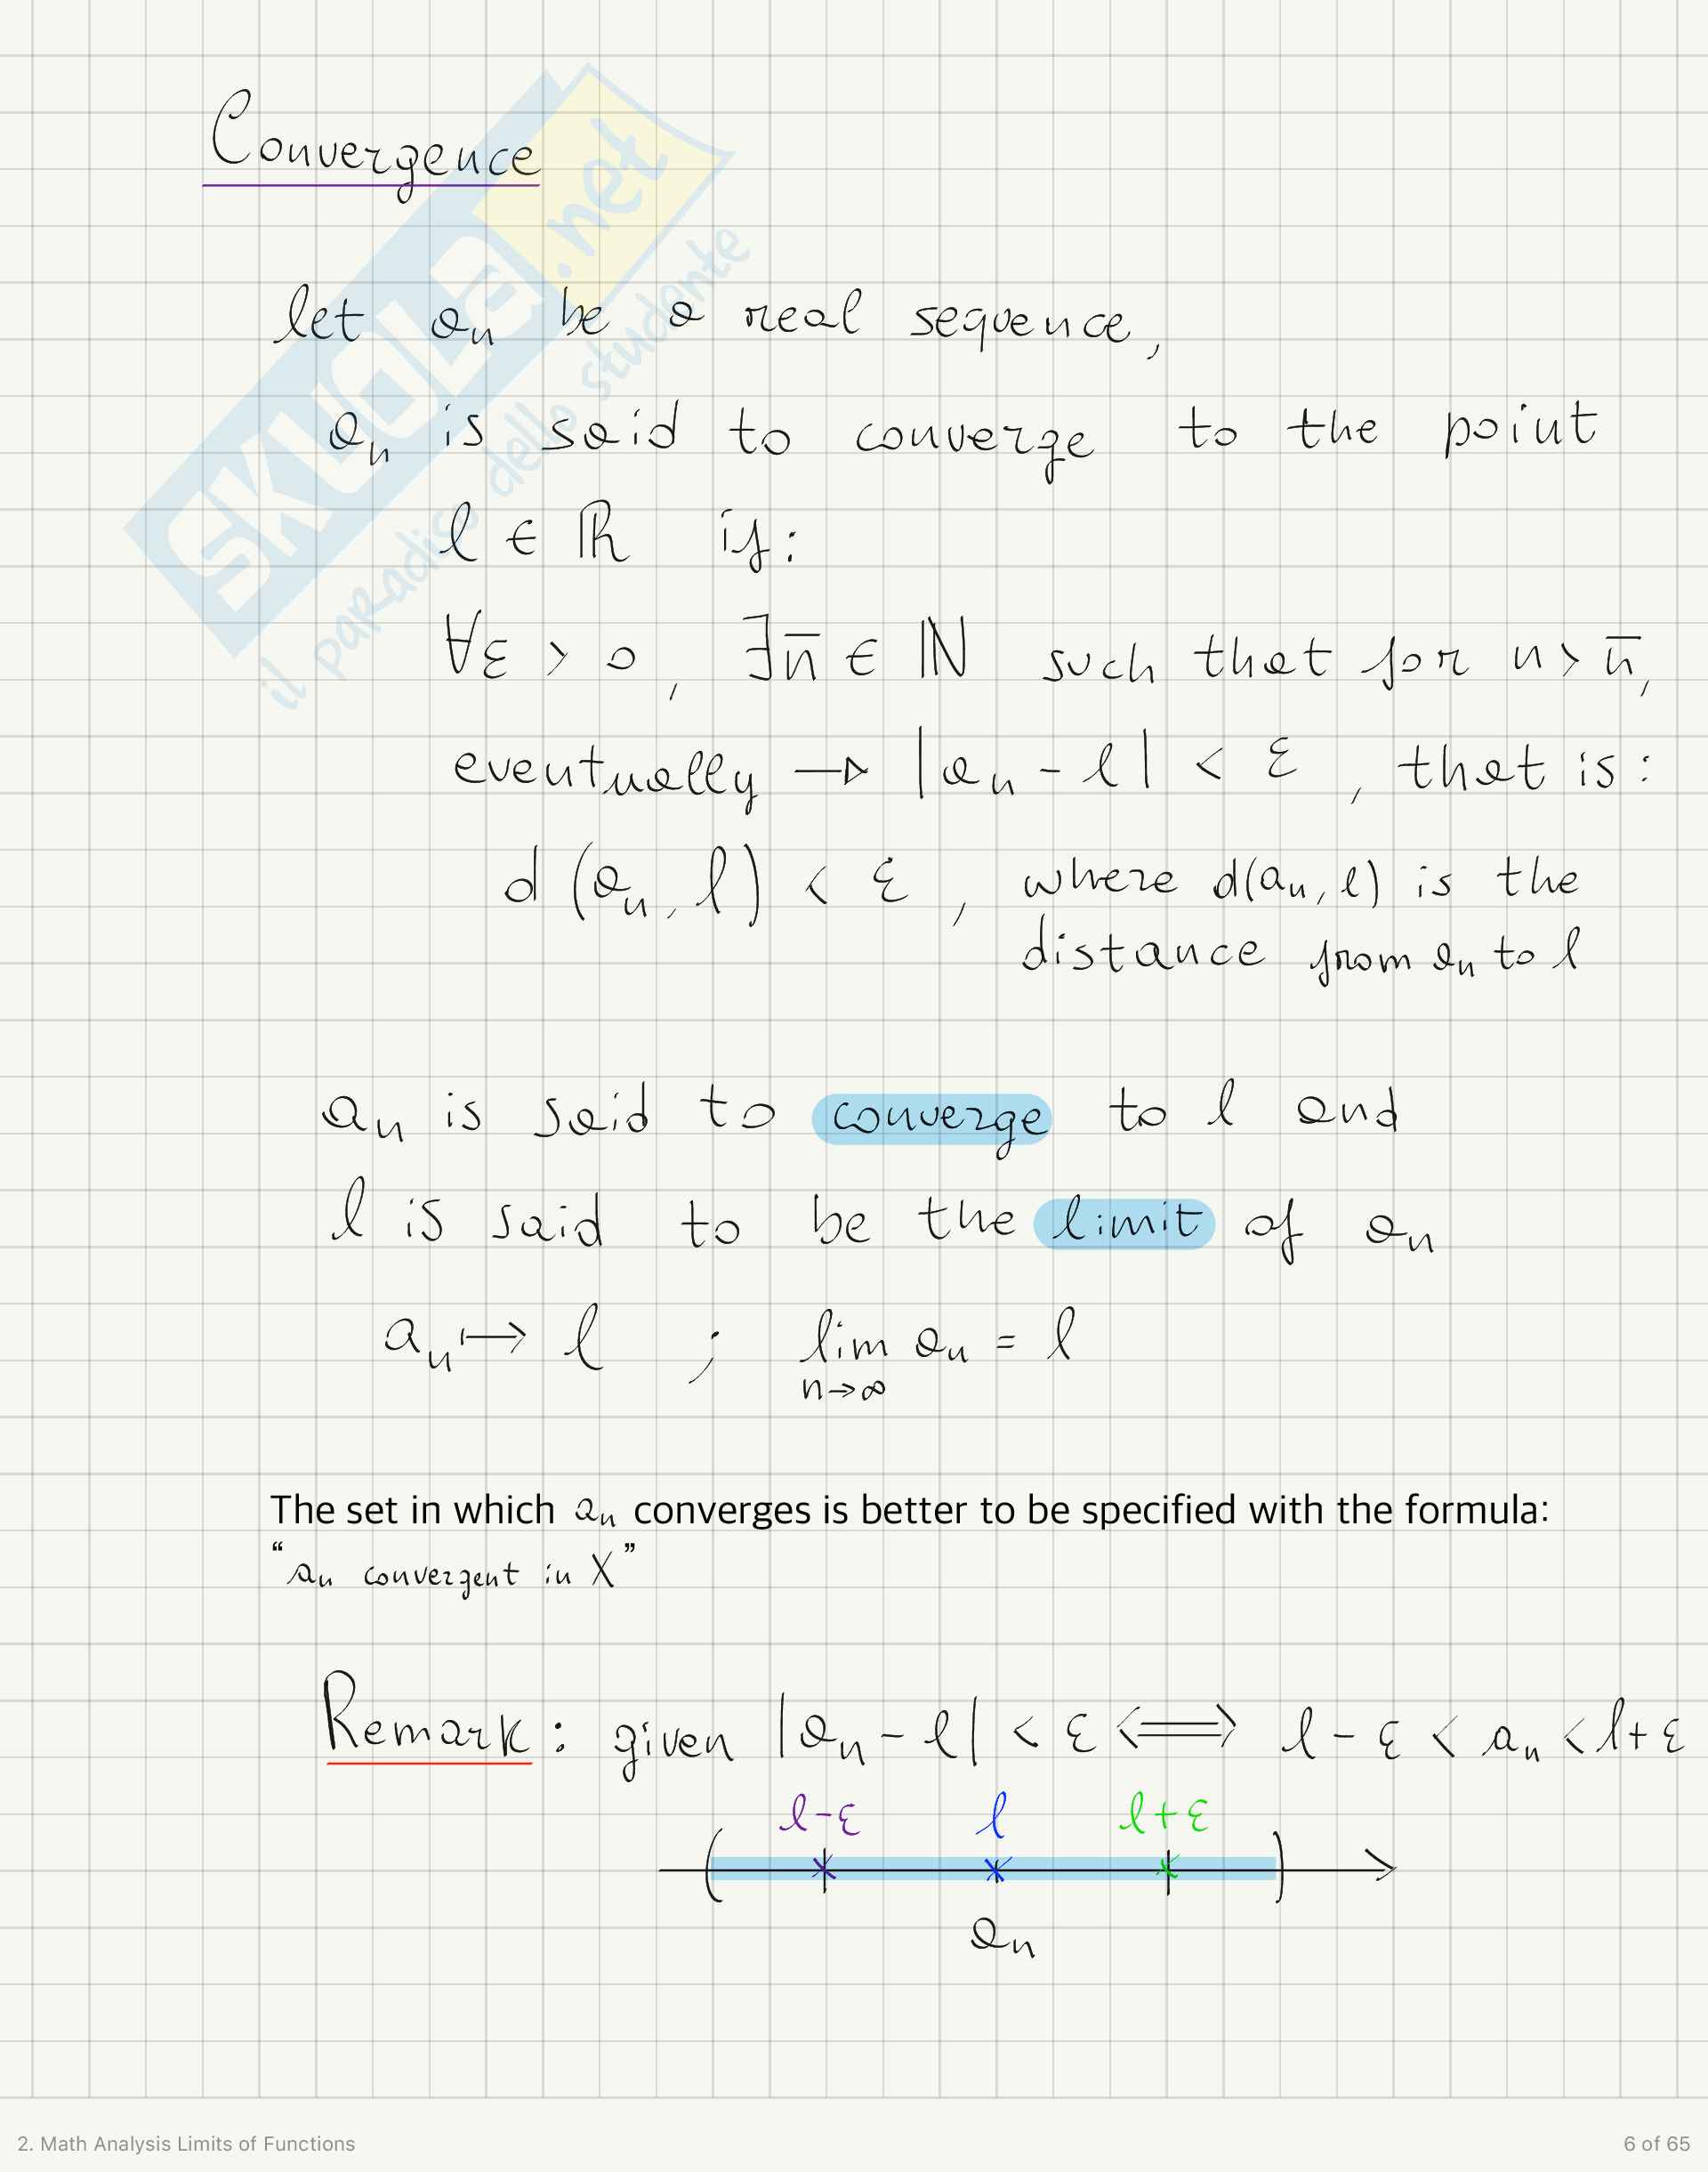 Convergence
let aₙ be a real sequence,
aₙ is said to converge to the point
l ∈ ℝ if:
∀ε > 0, ∃n̅ ∈ ℕ such that for n > n̅,
eventually → |aₙ - l| < ε, that is:
d(aₙ, l) < ε, where d(aₙ, l) is the
distance from aₙ to l
aₙ is said to converge to l and
l is said to be the limit of aₙ
aₙ ↦ l ; lim aₙ = l
n→∞
The set in which aₙ converges is better to be specified with the formula:
“aₙ convergent in X”
Remark: given |aₙ - l| < ε ⟺ l - ε < aₙ < l + ε
l-ε l l+ε
aₙ
SKUOLa.net
il paradiso dello studente
2. Math Analysis Limits of Functions 6 of 65